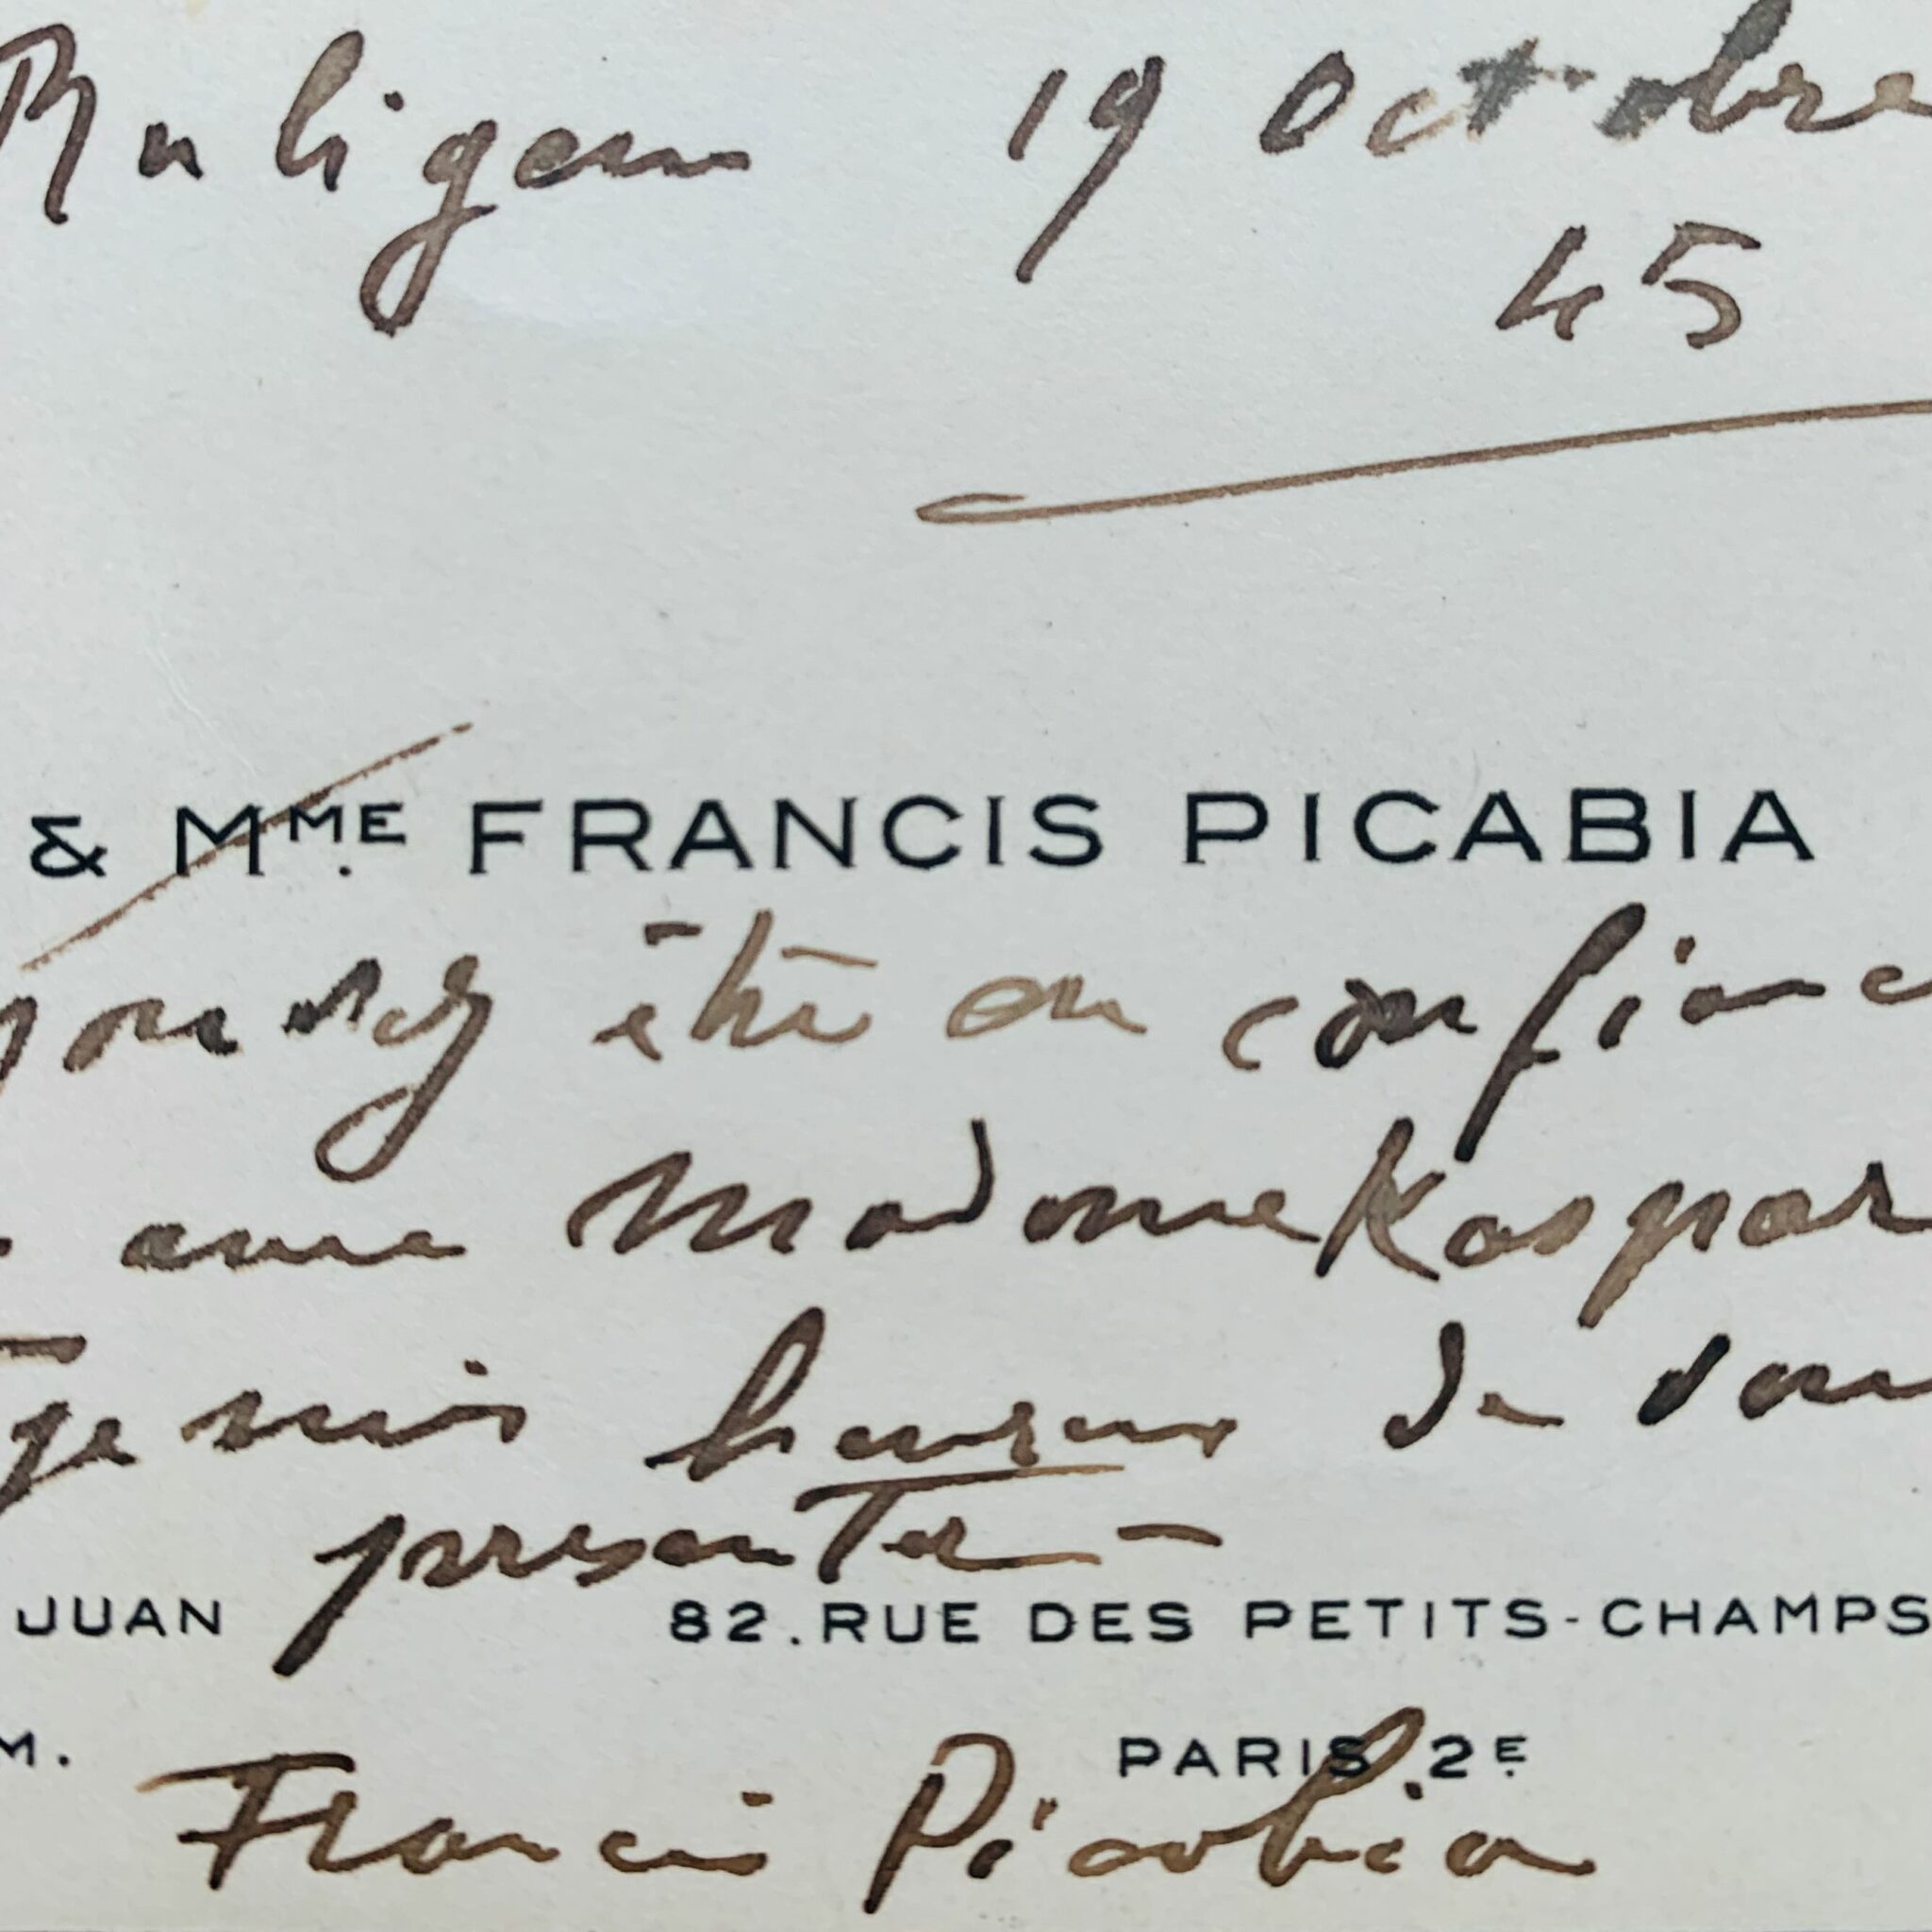 Ruligen 19 Octobre
45
& MME FRANCIS PICABIA
pouvez être en confianc
amie Madame Kaspar
je suis heureux de vou
presenter —
JUAN 82. RUE DES PETITS-CHAMPS
M. PARIS. 2E
Francis Picabia